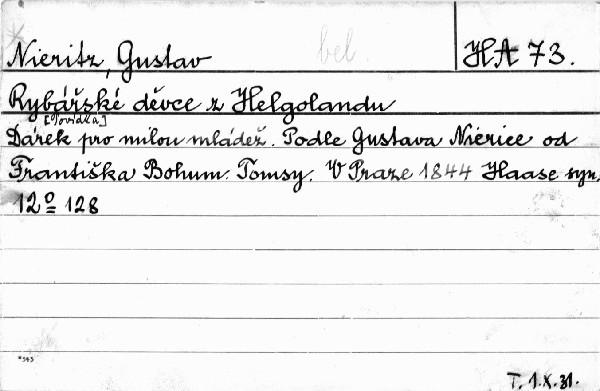 Nieritz, Gustav
bel.
HA 73.
Rybářské děvce z Helgolandu
[Povídka]
Dárek pro milou mládež. Podle Gustava Nierice od
Františka Bohum. Tomsy. V Praze 1844 Haase syn.
12º 128
*343
T. 1.X.31.